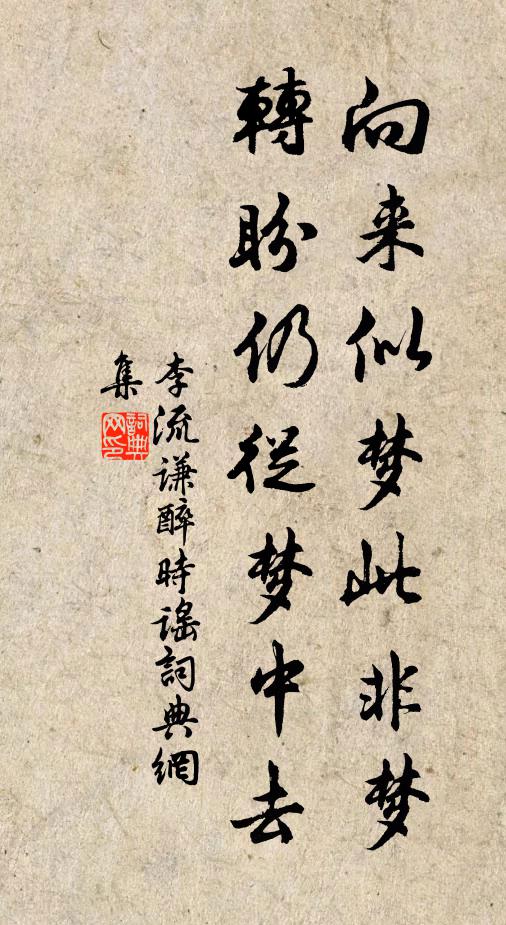 向来似梦此非梦
轉盼仍從梦中去
李流谦醉時謠詞典網
集
詞典网印